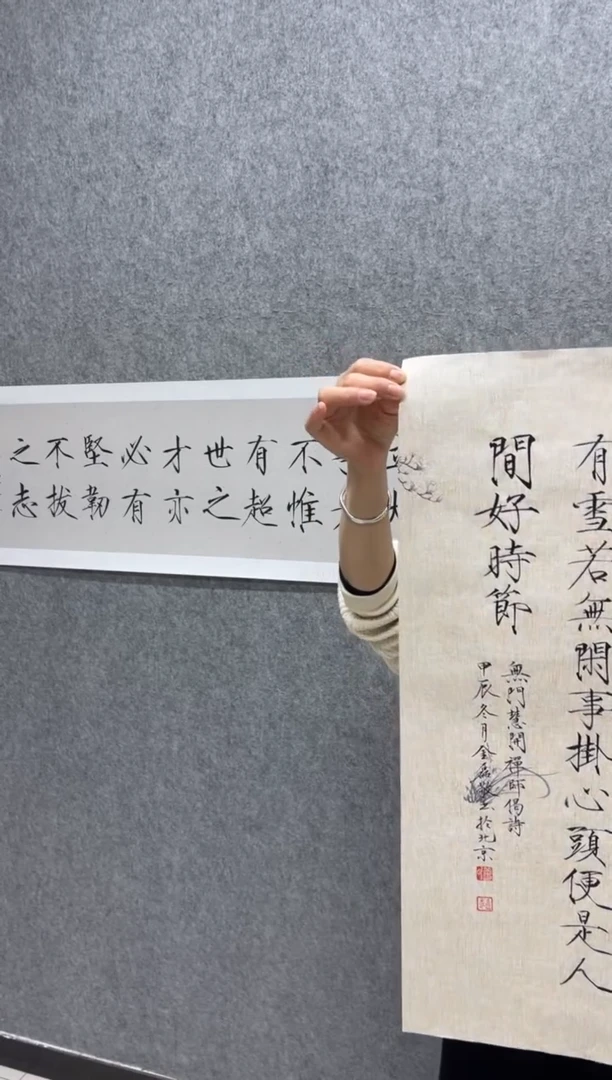 有雪若無閑事掛心頭便是人
間好時節
無門慧開禪師偈詩
甲辰冬月金磊於北京
不惟
有超
世之
才亦
必有
堅韌
不拔
之志